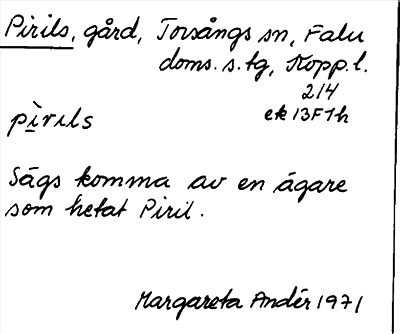 Pirils, gård, Torsångs sn, Falu
doms. s. tg, Kopp. l.
214
ek 13F7h
pìrɩls
Sägs komma av en ägare
som hetat Piril.
Margareta Andér 1971